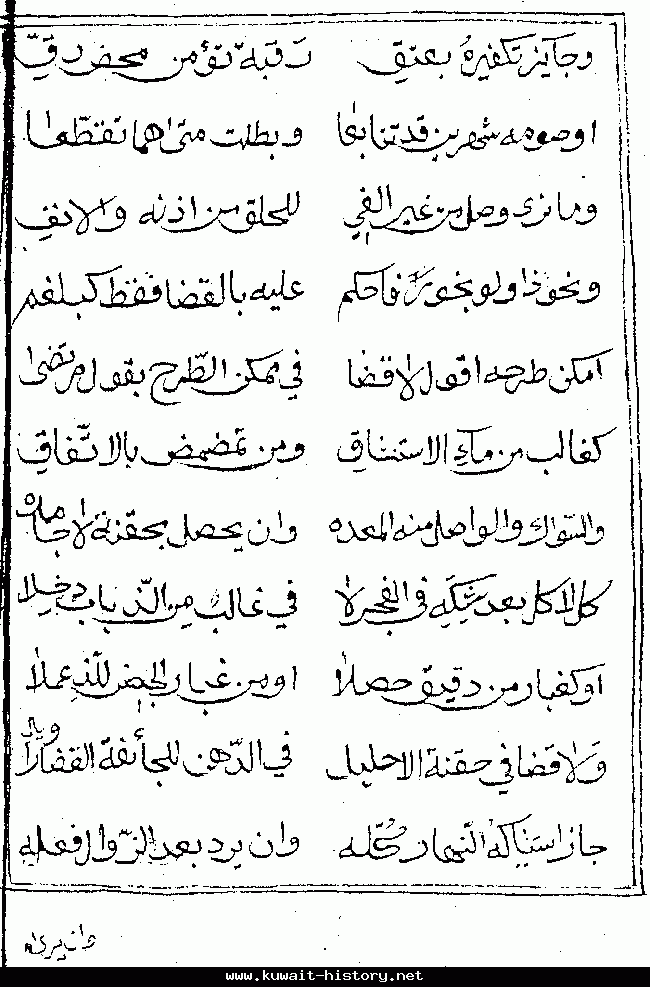 وجايز تكفيره بعتق رقبة تؤمن محض رق
او صومه شهرين قد تتابعا وبطلت متى هما تقطعا
وما نرى وصل من غير الفم للحلق من اذنه والانف
ونحو ذا ولو بخور فاحكم عليه بالقضا فقط كبلغم
امكن طرحه اقول لا قضا في ممكن الطرح بقول مرتضى
كغالب من ماء الاستنشاق ومن تمضمض بالاتفاق
والسواك والواصل منه المعده وان يحصل بحقنة لا جامده
كالاكل بعد شكه في الفجر لا في غالب من الذباب دخلا
او كغبار من دقيق حصلا او من غبار الجبس للذ عملا
ولا قضا في حقنة الاحليل في الدهن للجائفة القضا
جاز استياكه النهار كله وان يرد بعد الزوال فعله
وان يرى
www.kuwait-history.net